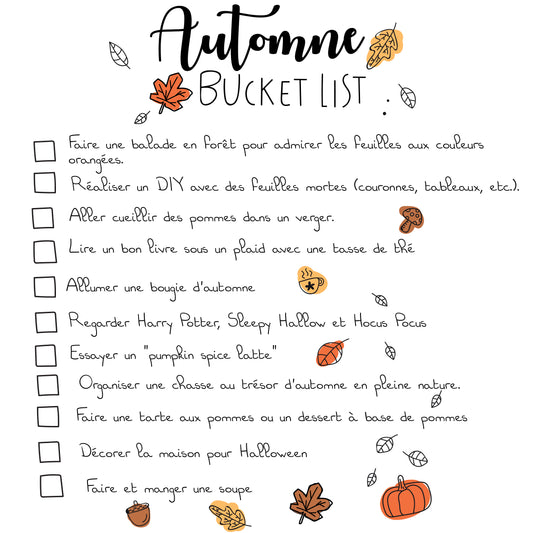 Automne
BUCKET LIST
Faire une balade en forêt pour admirer les feuilles aux couleurs
orangées.
Réaliser un DIY avec des feuilles mortes (couronnes, tableaux, etc.).
Aller cueillir des pommes dans un verger.
Lire un bon livre sous un plaid avec une tasse de thé
Allumer une bougie d'automne
Regarder Harry Potter, Sleepy Hallow et Hocus Pocus
Essayer un "pumpkin spice latte"
Organiser une chasse au trésor d'automne en pleine nature.
Faire une tarte aux pommes ou un dessert à base de pommes
Décorer la maison pour Halloween
Faire et manger une soupe